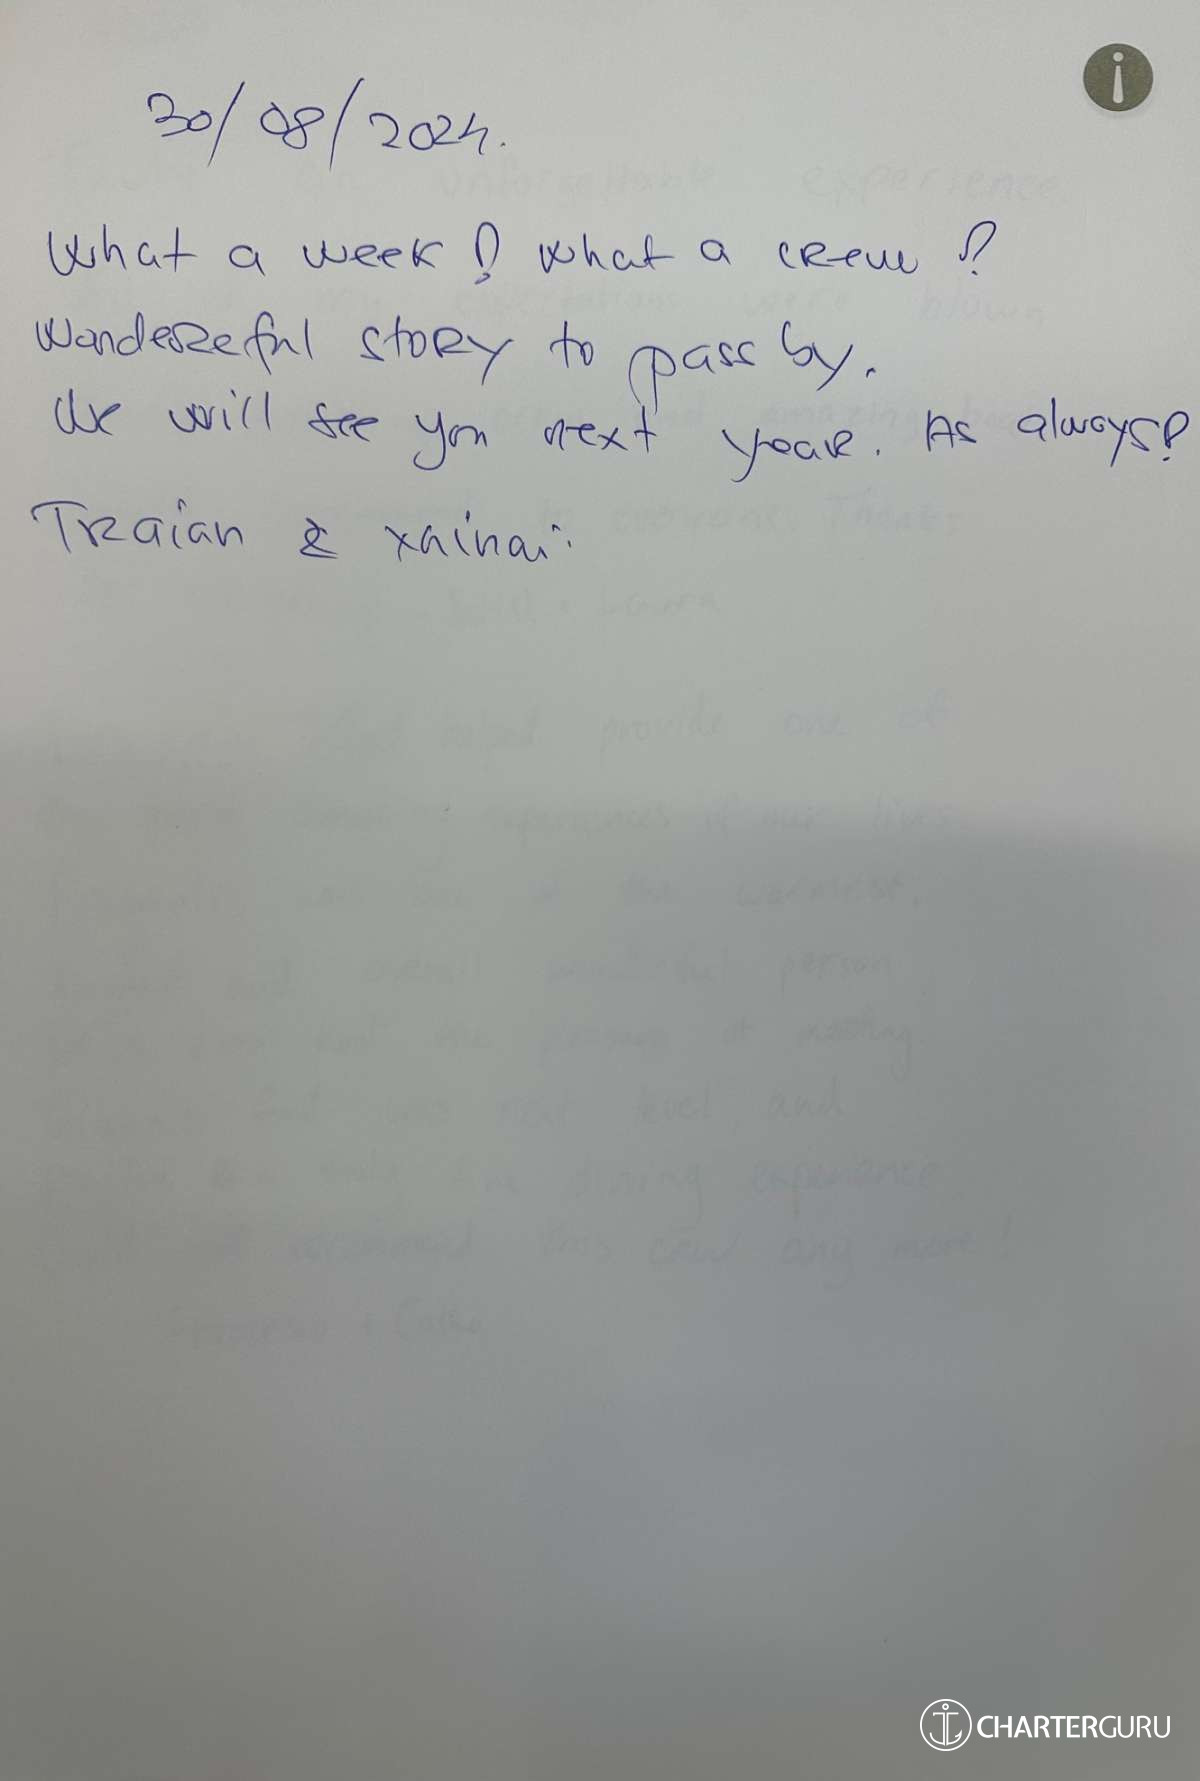 30/08/2024.
What a week! What a crew!
Wonderful story to pass by.
We will see you next year. As always!
Traian &
CHARTERGURU